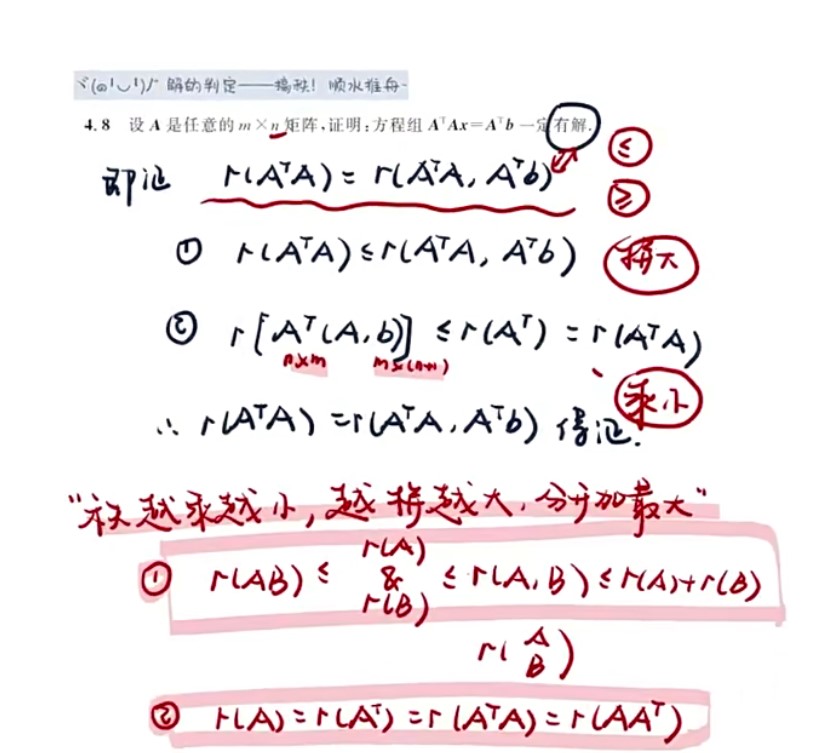 ヾ(๑╹◡╹)ノ" 解的判定——搞秩！顺水推舟~
4.8 设 A 是任意的 m×n 矩阵,证明:方程组 AᵀAx=Aᵀb 一定有解.
即证 r(AᵀA) = r(AᵀA, Aᵀb) ≤
≥
① r(AᵀA) ≤ r(AᵀA, Aᵀb) 拼大
② r[Aᵀ(A,b)] ≤ r(Aᵀ) = r(AᵀA)
n×m m×(n+1)
乘小
∴ r(AᵀA) = r(AᵀA, Aᵀb) 得证.
"秩越乘越小, 越拼越大, 分开加最大"
① r(AB) ≤ r(A) & r(B) ≤ r(A,B) ≤ r(A)+r(B)
r(A B)
② r(A) = r(Aᵀ) = r(AᵀA) = r(AAᵀ)